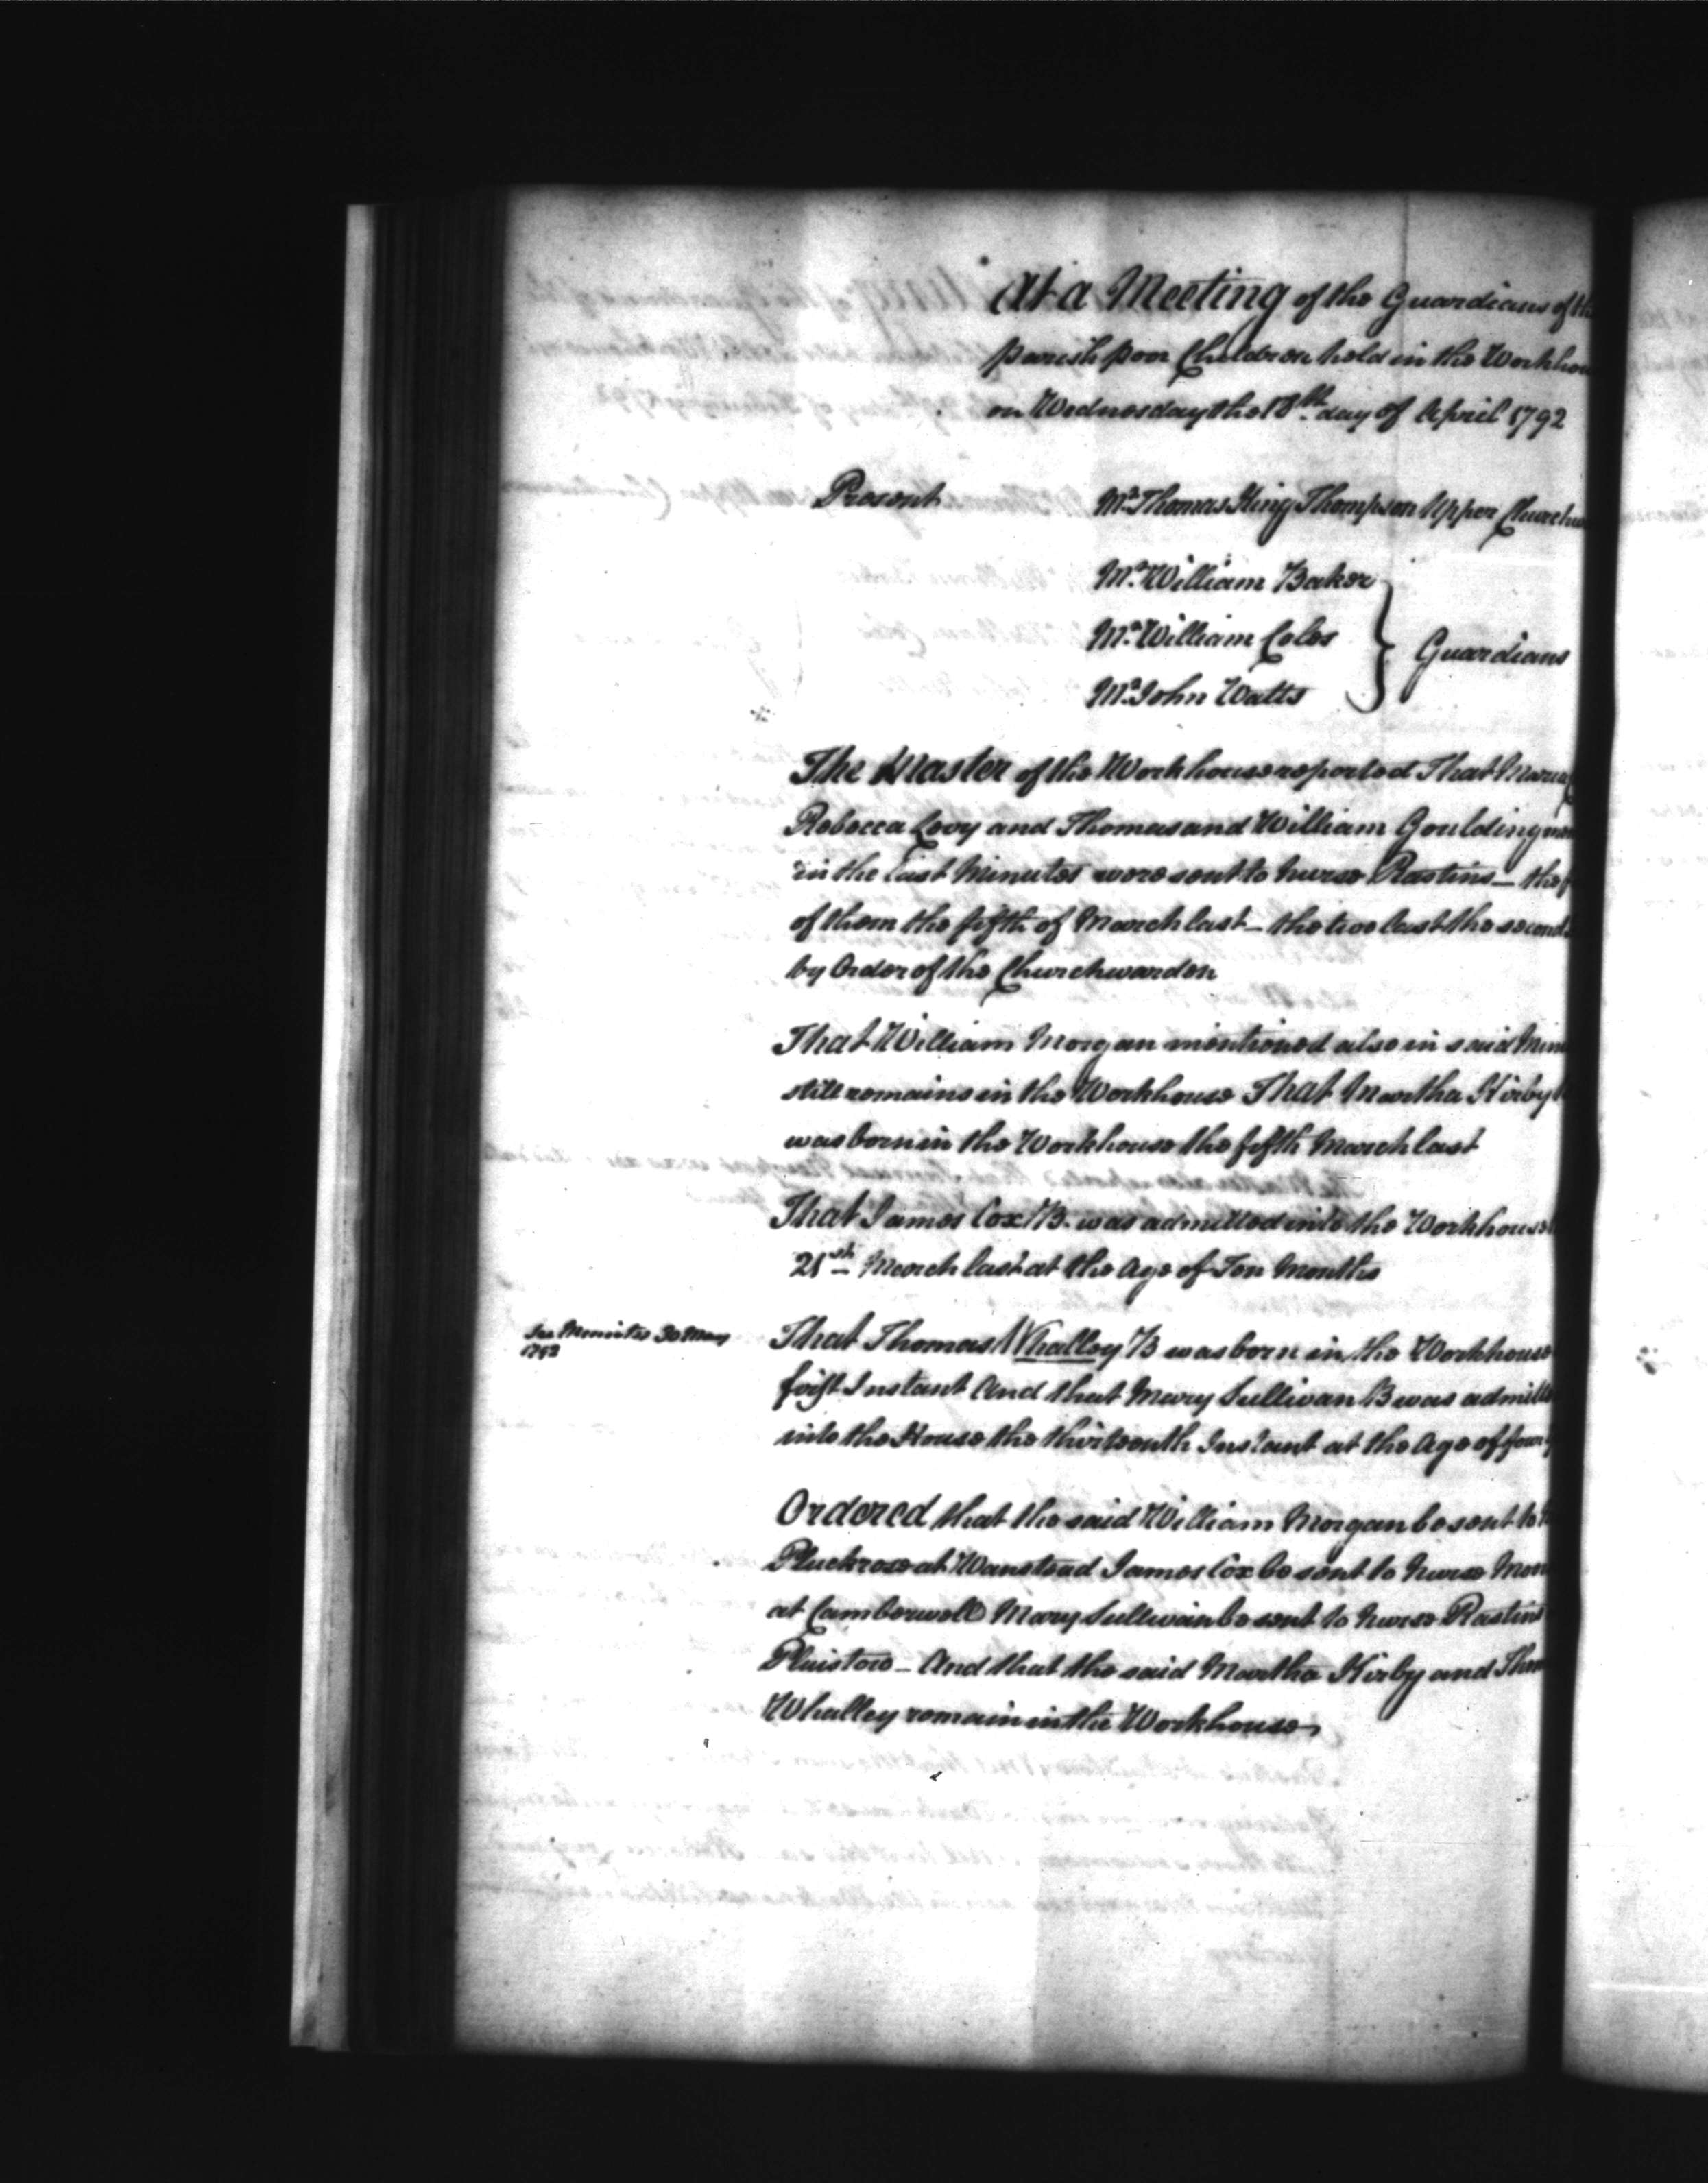 At a Meeting of the Guardians of th
parish poor Children held in the Workhou
on Wednesday the 18th. day of April 1792
Present
Mr. Thomas King Thompson Upper Churchw
Mr. William Baker
Mr. William Coles
Guardians
Mr. John Watts
The Master of the Workhouse reported That
Rebecca Levy and Thomas and William Goulding
in the last Minutes were sent to nurse Rastins _ the f
of them the fifth of March last _ the two last the second
by Order of the Churchwarden
That William Morgan mentioned also in said Minu
still remains in the Workhouse That Martha Kirby
was born in the Workhouse the fifth March last
That James Cox B. was admitted into the Workhouse
21st March last at the Age of Ten Months
See Minutes 30 May
1792
That Thomas Whalley B was born in the Workhouse
first Instant And that Mary Sullivan B was admitt
into the House the thirteenth Instant at the Age of four
Ordered that the said William Morgan be sent to
Pluckrose at Wanstead James Cox be sent to Nurse
at Camberwell Mary Sullivan be sent to Nurse Rastins
Plaistow _ And that the said Martha Kirby and Thom
Whalley remain in the Workhouse